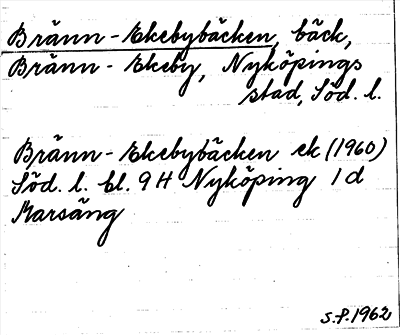 Bränn-Ekebybäcken, bäck,
Bränn-Ekeby, Nyköpings
stad, Söd. l.
Bränn-Ekebybäcken ek (1960)
Söd. l. bl. 9 H Nyköping 1 d
Marsäng
S.P. 1962